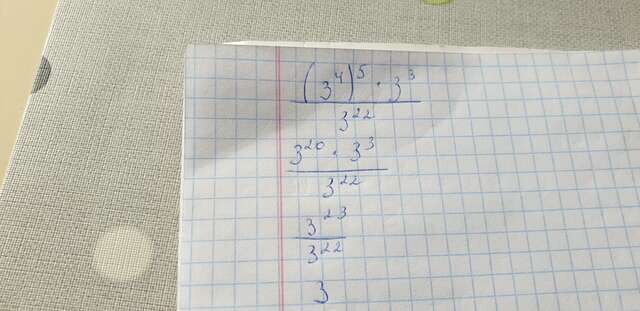 (3^4)^5 · 3^3
3^22
3^20 · 3^3
3^22
3^23
3^22
3